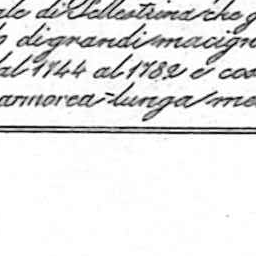 ale di Pellestrina che g
o di grandi macign
dal 1744 al 1782 è cos
armorea=lunga me